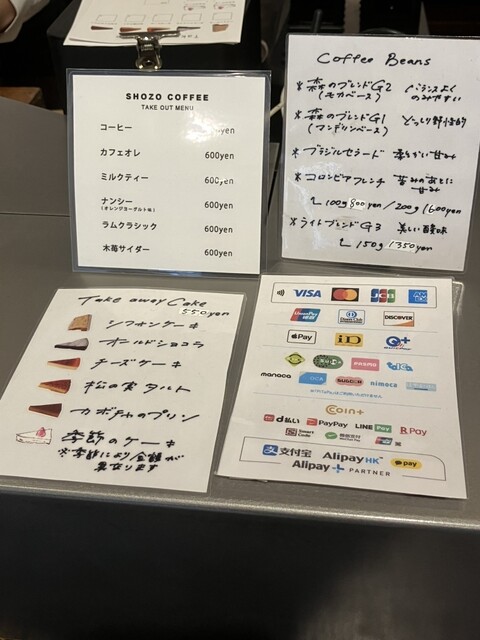 SHOZO COFFEE
TAKE OUT MENU
コーヒー 600yen
カフェオレ 600yen
ミルクティー 600yen
ナンシー 600yen
(オレンジヨーグルト味)
ラムクラシック 600yen
木苺サイダー 600yen
Coffee Beans
※森のブレンドG2 バランスよく
(モカベース) のみやすい
※森のブレンドG1 どっしり野性的
(マンデリンベース)
※ブラジルセラード 柔らかい甘み
※コロンビアフレンチ 苦みのあとに
甘み
100g 800yen / 200g 1600yen
※ライトブレンドG3 美しい酸味
150g 1350yen
Take away Cake
550yen
シフォンケーキ
オールドショコラ
チーズケーキ
松の実タルト
カボチャのプリン
季節のケーキ
※季節により金額が
異なります
VISA mastercard JCB
UnionPay 銀联 Diners Club DISCOVER
Apple Pay iD
manaca SUGOCA nimoca
COIN+
d払い PayPay LINE Pay R Pay
Smart Code
支付宝 Alipay HK pay
Alipay+ PARTNER